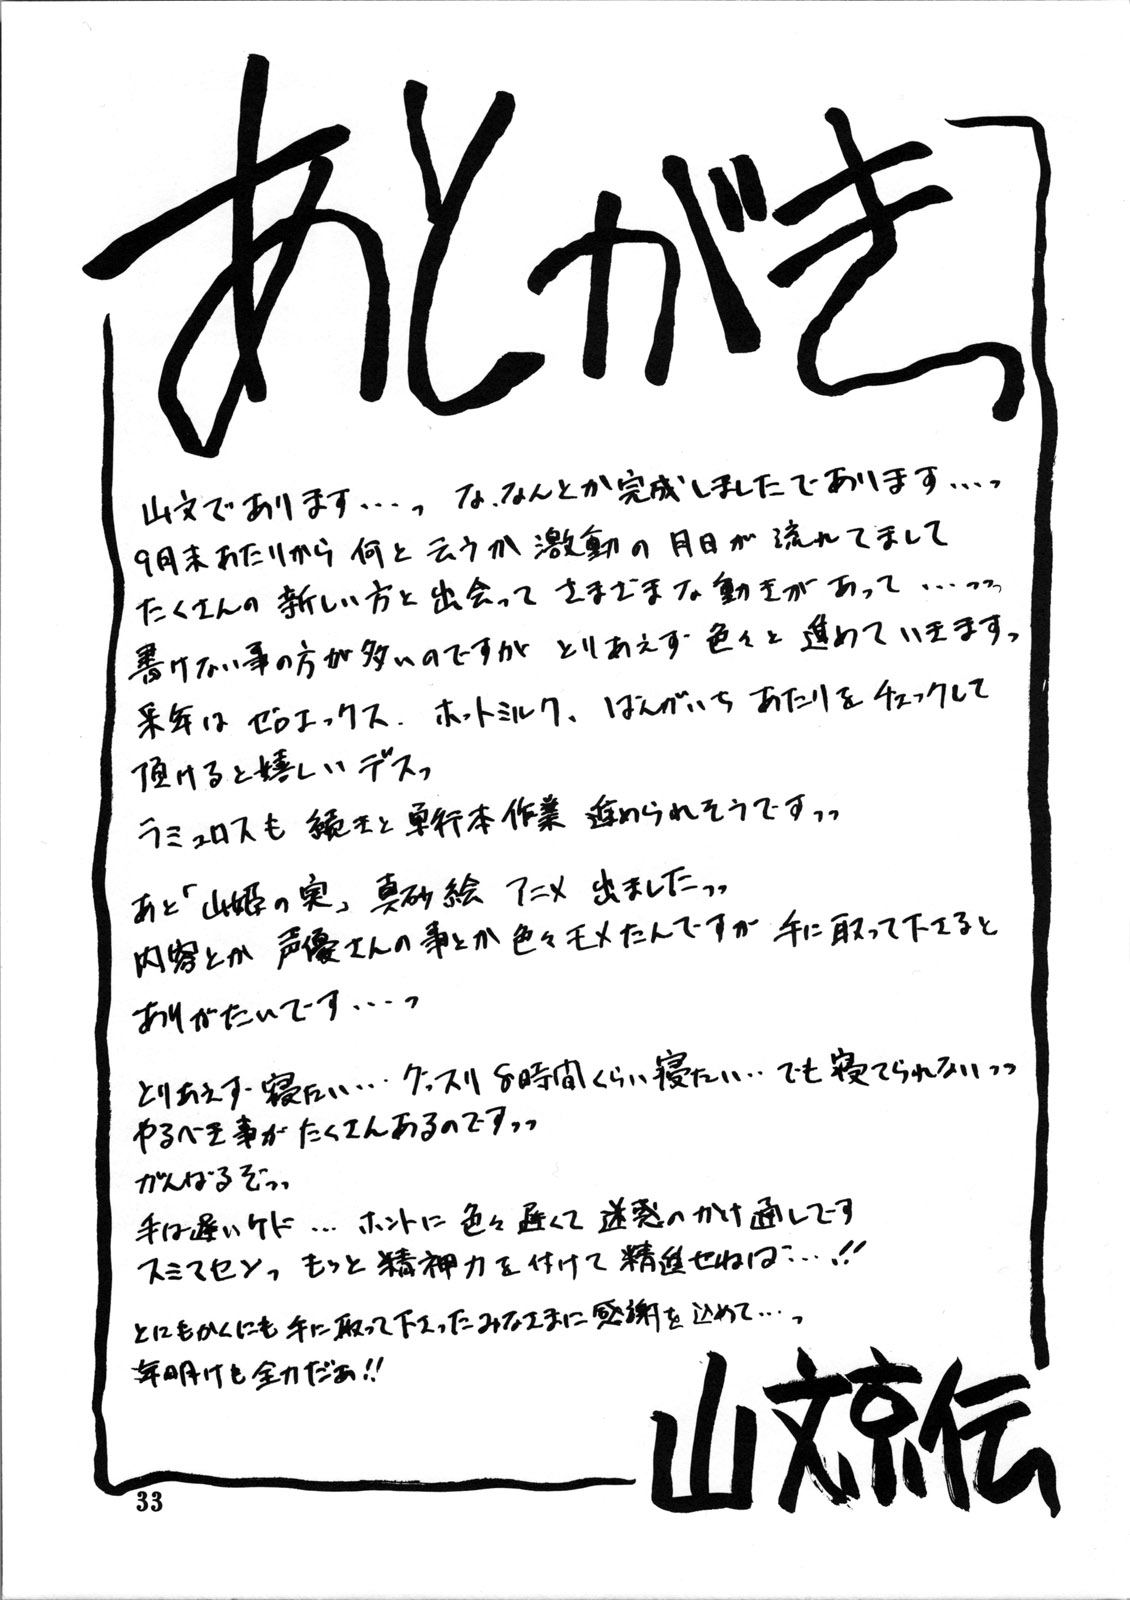 あとがきっ
山文であります・・・っ な、なんとか完成しましたであります・・・っ
9月末あたりから 何と云うか 激動の 月日が 流れてまして
たくさんの 新しい方と 出会って さまざまな動きがあって ・・・っっ
書けない事の方が多いのですが とりあえず 色々と 進めていきますっ
来年は ゼロエックス、ホットミルク、ばんがいち あたりを チェックして
頂けると嬉しいデスっ
ラミュロスも 続きと 単行本作業 進められそうですっっ
あと「山姫の実」真砂絵 アニメ 出ましたっっ
内容とか 声優さんの事とか 色々モメたんですが 手に取って下さると
ありがたいです・・・っ
とりあえず 寝たい・・・ グッスリ 8時間くらい 寝たい・・ でも 寝てられないっっ
やるべき事が たくさんあるのですっっ
がんばるぞっっ
手は遅いケド ・・・ ホントに 色々 遅くて 迷惑のかけ通しです
スミマセンっ もっと 精神力を付けて 精進せねば・・・!!
とにもかくにも 手に取って下さったみなさまに 感謝を込めて・・・っ
年明けも 全力だぁ!!
山文京伝
33